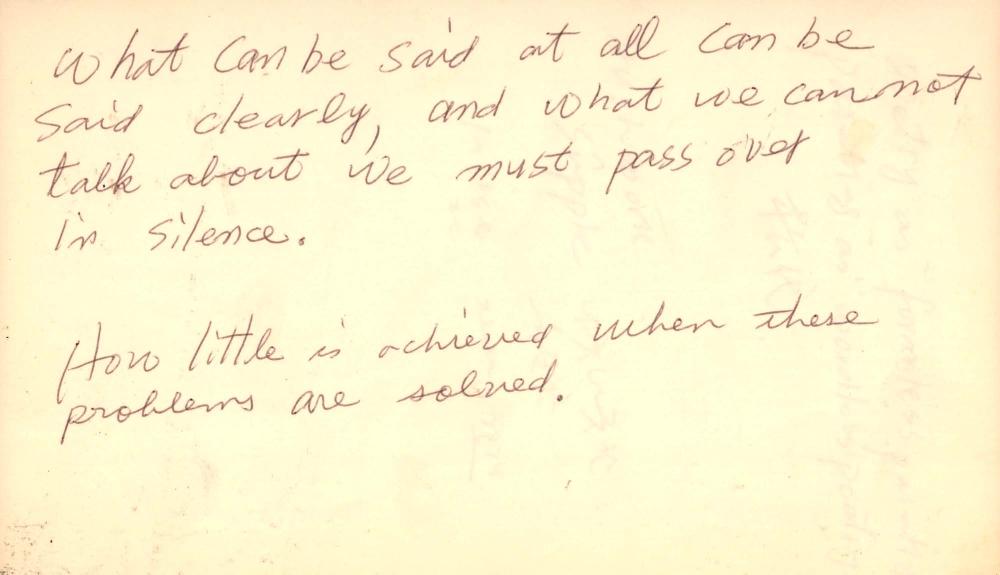 What can be said at all can be
said clearly, and what we can not
talk about we must pass over
in silence.
How little is achieved when these
problems are solved.